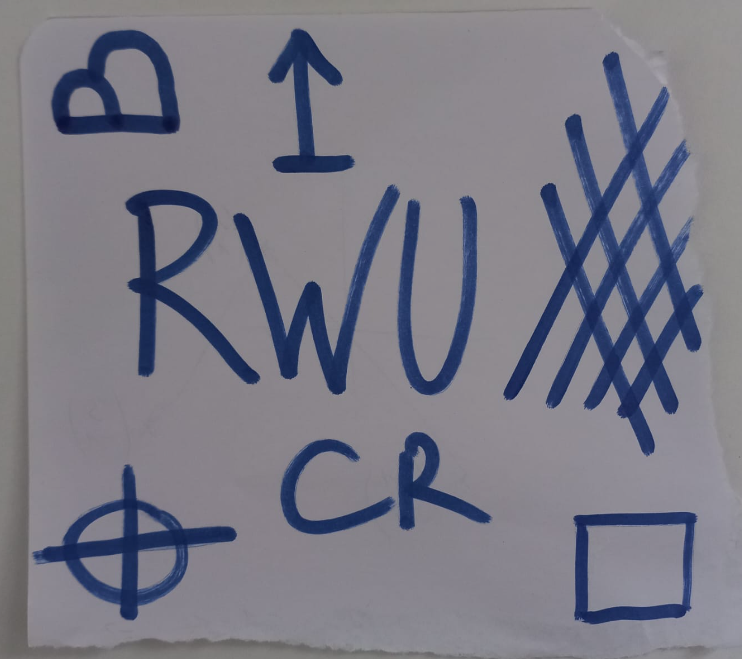 B
RWU
CR